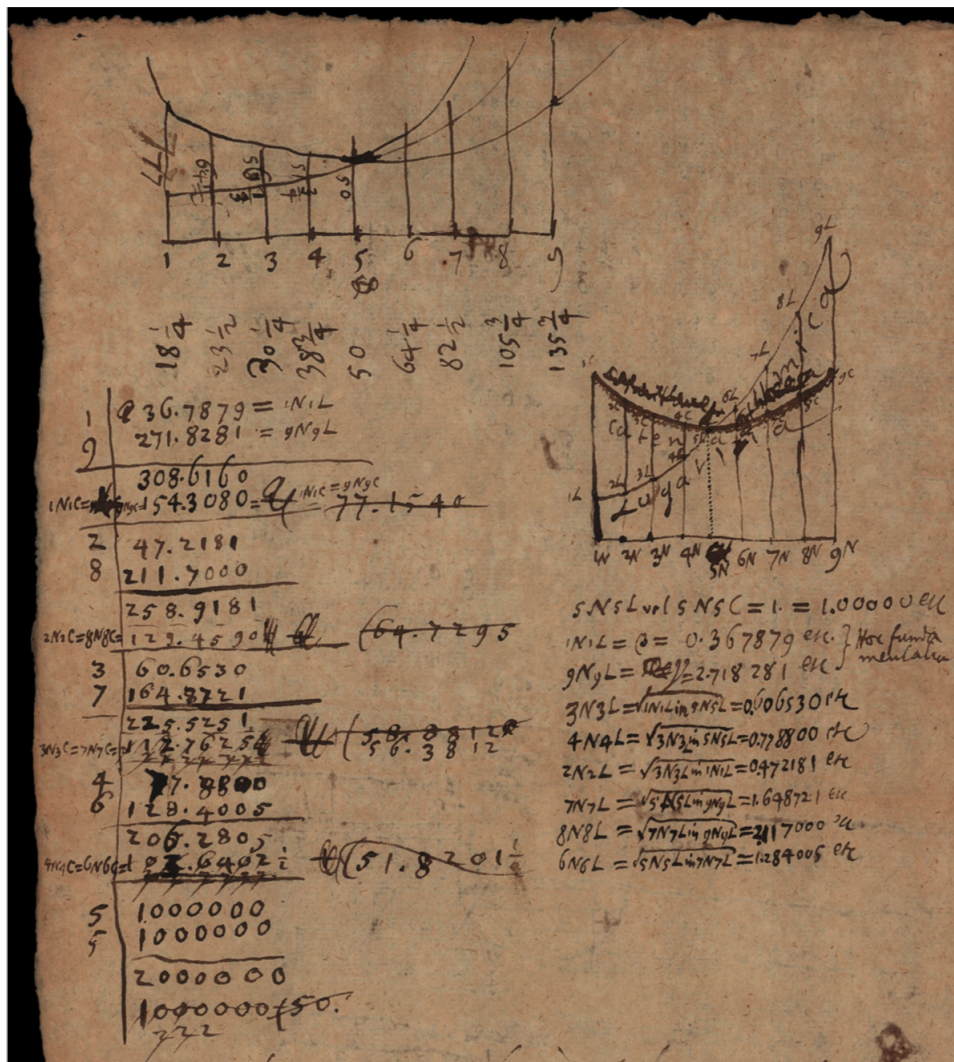 77
50
1 2 3 4 5 6 7 8 9
18 1/4
23 1/2
30 1/4
38 3/4
50
64 1/4
82 1/2
105 3/4
135 3/4
1 36.7879 = 1N1L
9 271.8281 = 9N9L
308.6160
154.3080 = 1N1C = 9N9C 77.1540
2 47.2181
8 211.7000
258.9181
2N2C=8N8C= 129.4590 (64.7295
3 60.6530
7 164.8721
225.5251
3N3C=7N7C= 56.3812
4 77.8800
6 128.4005
206.2805
(51.8201 1/2
5 1000000
5 1000000
2000000
1000000 (50.
222
9L
8L
7L
6L
9C
8C
Catenaria
3L
2L
1L
1N 2N 3N 4N 5N 6N 7N 8N 9N
5N5L vel 5N5C = 1. = 1.00000 etc
1N1L = = 0.367879 etc. } Hoc funda
9N9L = 2.718281 etc mentalia
3N3L = √1N1L in 9N5L = 0.606530 etc
4N4L = √3N3L in 5N5L = 0.778800 etc
2N2L = √3N3L in 1N1L = 0.472181 etc
7N7L = √5N5L in 9N9L = 1.648721 etc
8N8L = √7N7L in 9N9L = 2.117000 etc
6N6L = √5N5L in 7N7L = 1.284005 etc